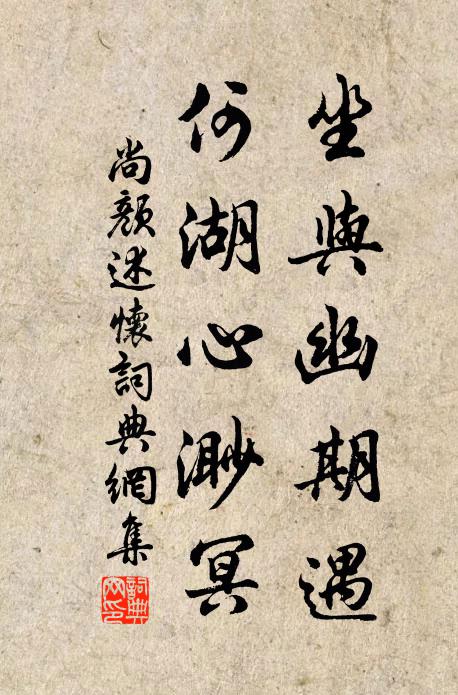 坐與幽期遇
何湖心渺冥
尚顏述懷詞典網集
詞典網印